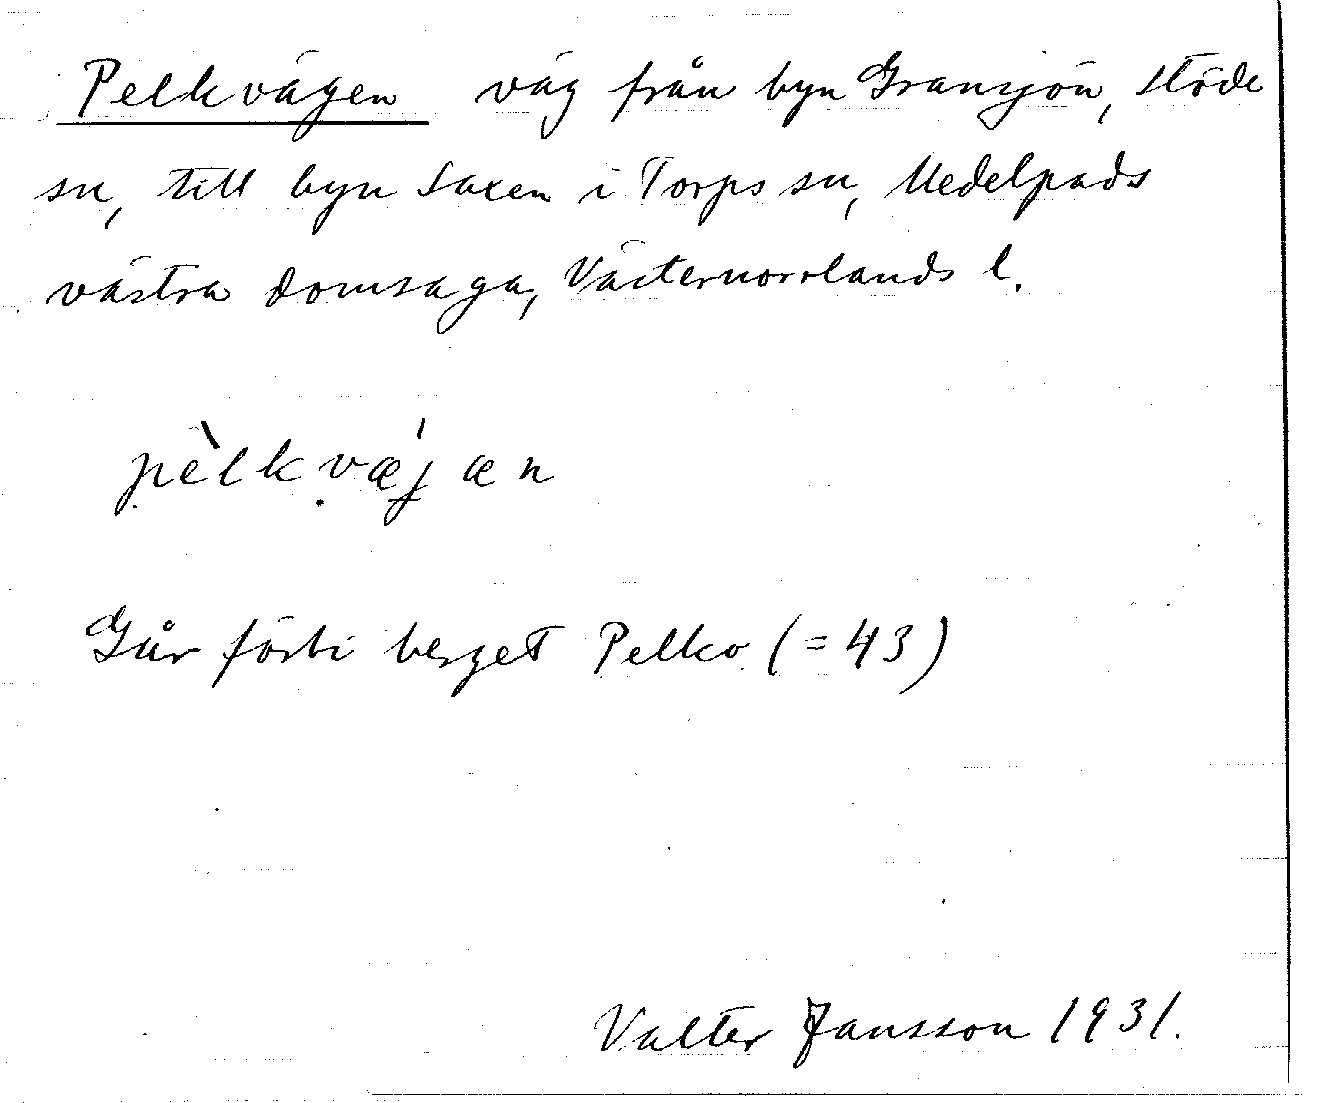 Pelkvägen väg från byn Gransjön, Stöde
sn, till byn Saxen i Torps sn, Medelpads
västra domsaga, Västernorrlands l.
pèlkvǽ̣jæn
Går förbi berget Pelko (=43)
Valter Jansson 1931.